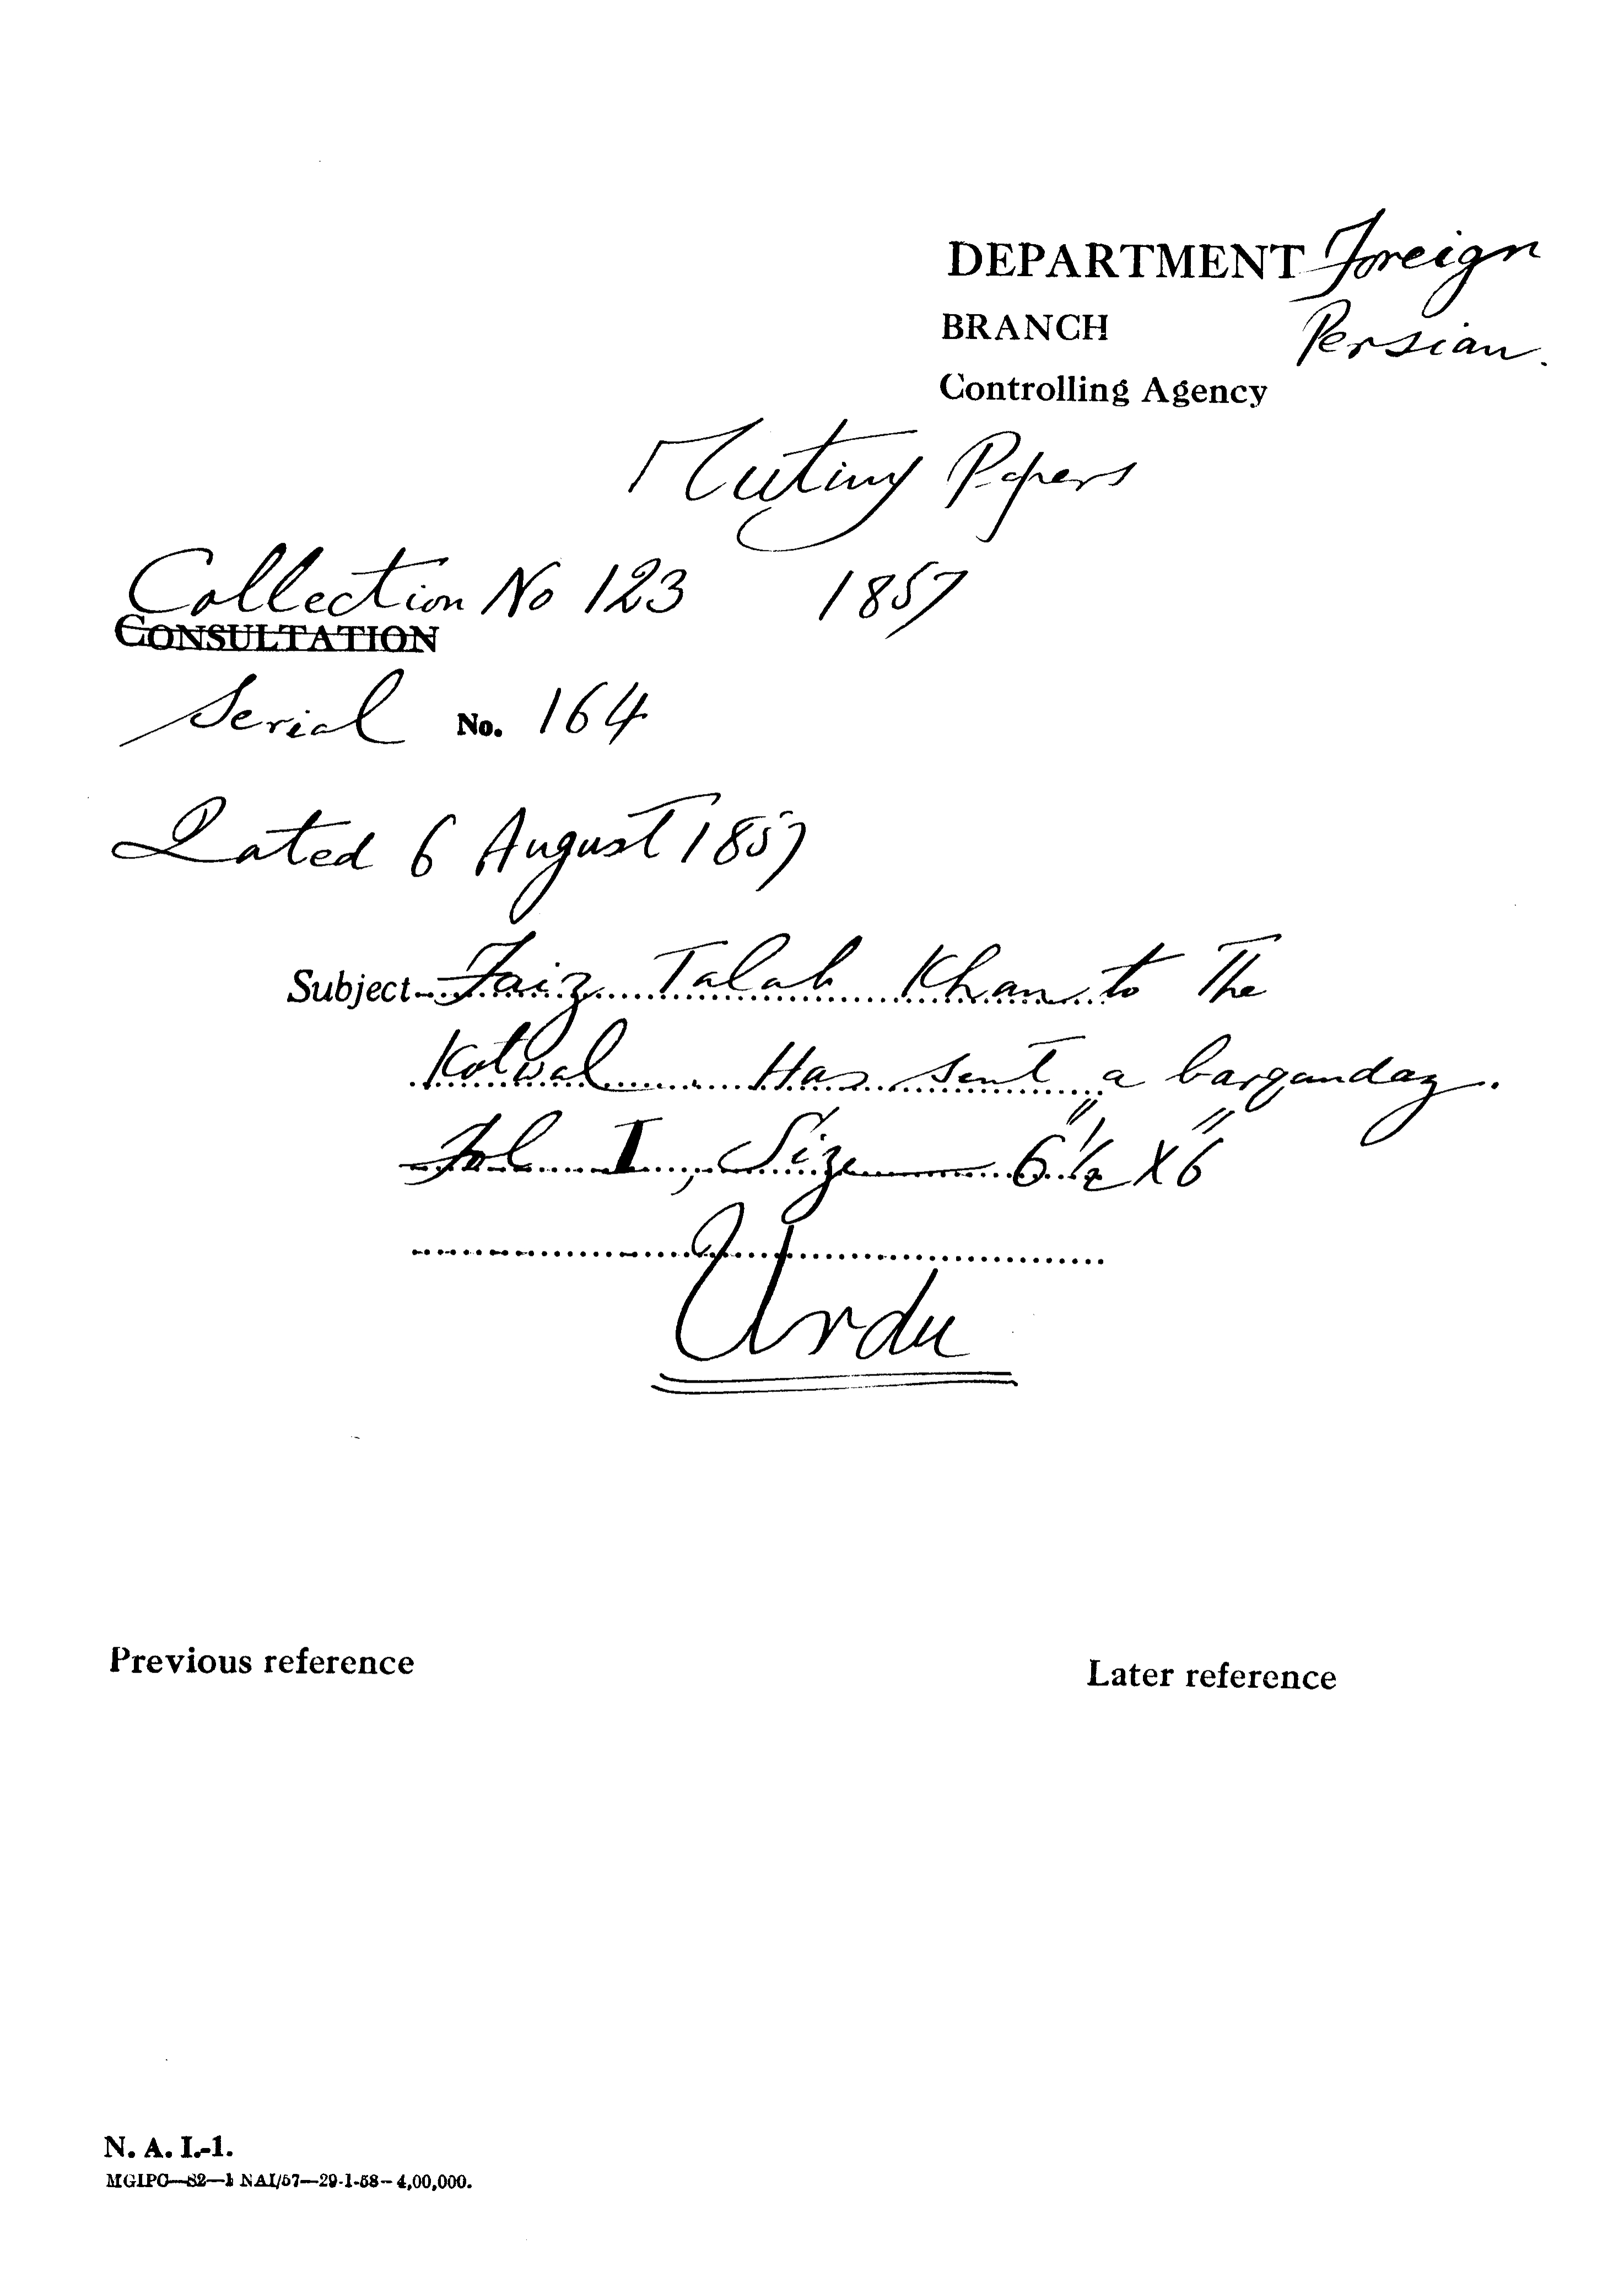 DEPARTMENT Foreign
BRANCH Persian.
Controlling Agency
Mutiny Papers
Collection No 123 1857
CONSULTATION
Serial No. 164
Dated 6 August 1857
Subject Faiz Talab Khan to The
Kotwal. Has sent a barqandaz.
Fol I, Size 6½" X 6"
Urdu
Previous reference
Later reference
N. A. I.-1.
MGIPC—S2—1 NAI/57—29-1-58—4,00,000.